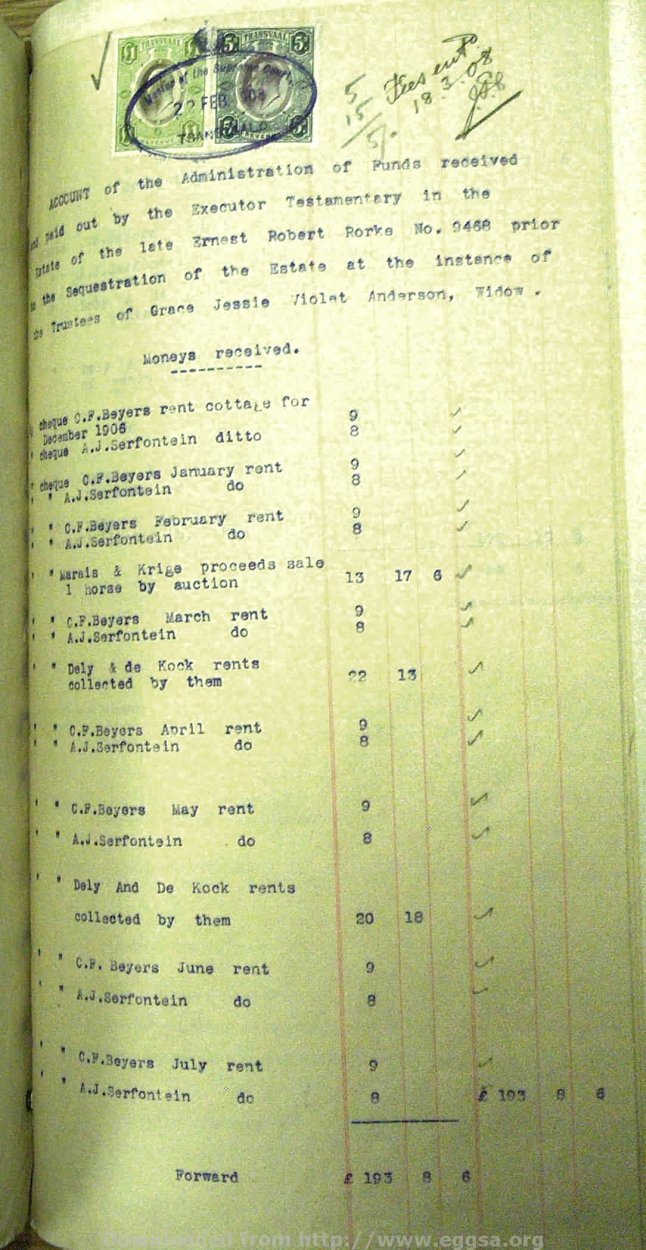 £1 TRANSVAAL 5/ TRANSVAAL 5/
Master of the Supreme Court
22 FEB 1908
TRANSVAAL
5
15
5/.
Fees ent
18.3.08
ACCOUNT of the Administration of Funds received
and paid out by the Executor Testamentary in the
Estate of the late Ernest Robert Rorke No. 9468 prior
to the Sequestration of the Estate at the instance of
the Trustees of Grace Jessie Violet Anderson, Widow .
Moneys received.
----------
cheque C.F.Beyers rent cottage for
December 1906 9
" cheque A.J.Serfontein ditto 8
" cheque C.F.Beyers January rent 9
" " A.J.Serfontein do 8
" " C.F.Beyers February rent 9
" " A.J.Serfontein do 8
" " Marais & Krige proceeds sale
1 horse by auction 13 17 6
" " C.F.Beyers March rent 9
" " A.J.Serfontein do 8
" " Dely & de Kock rents
collected by them 22 13
" " C.F.Beyers April rent 9
" " A.J.Serfontein do 8
" " C.F.Beyers May rent 9
" " A.J.Serfontein . do 8
" " Dely And De Kock rents
collected by them 20 18
" " C.F. Beyers June rent 9
" " A.J.Serfontein do 8
" " C.F.Beyers July rent 9
" " A.J.Serfontein do 8 £ 193 8 6
Forward £ 193 8 6
from http://www.eggsa.org